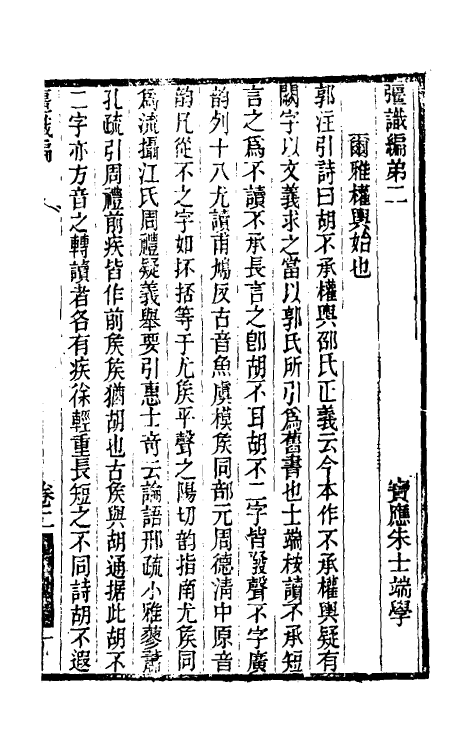 彊識編弟二　寶應朱士端學
爾雅權輿始也
郭注引詩曰胡不承權輿邵氏正義云今本作不承權輿疑有
闕字以文義求之當以郭氏所引爲舊書也士端桉讀不承短
言之爲不讀不承長言之卽胡不耳胡不二字皆發聲不字廣
韵列十八尤讀甫鳩反古音魚虞模矦同部元周德淸中原音
韵凡從不之字如抔桮等于尤矦平聲之陽切韵指南尤矦同
爲流攝江氏周禮疑義舉要引惠士奇云論語邢疏小雅蓼蕭
孔疏引周禮前疾皆作前矦矦猶胡也古矦與胡通据此胡不
二字亦方音之轉讀者各有疾徐輕重長短之不同詩胡不遐
彊識編　卷二　一